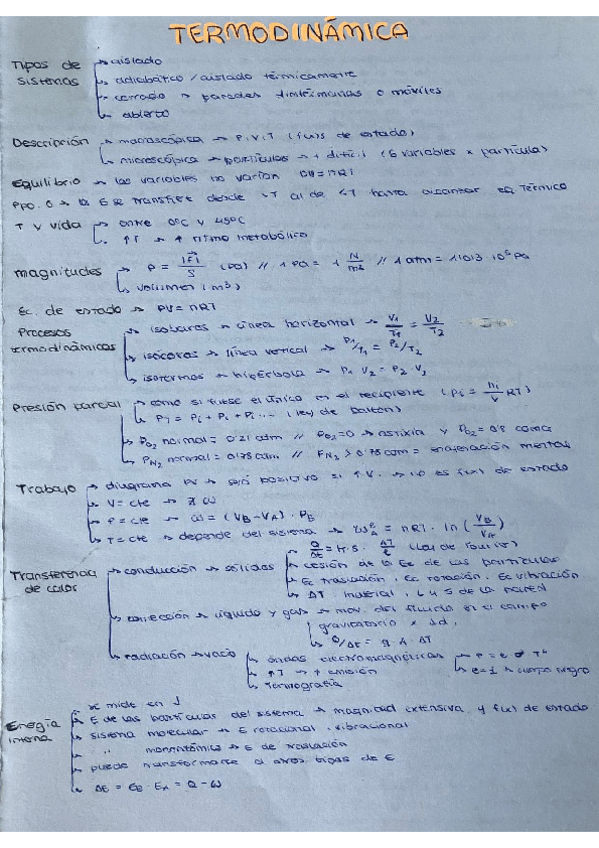 TERMODINÁMICA
Tipos de sistemas → aislado
→ adiabático / aislado térmicamente
→ cerrado → paredes diatérmanas o móviles
→ abierto
Descripción → macroscópica → P, V, T (fu(x)s de estado)
→ microscópica → partículas → + difícil (6 variables x partícula)
Equilibrio → las variables no varían PV = nRT
Ppo. 0 → la E se transfiere desde >T al de <T hasta alcanzar eq. térmico
T y vida → entre 0ºC y 45ºC
→ ↑T → ↑ ritmo metabólico
magnitudes → P = |F| / S (Pa) // 1 Pa = 1 N/m² // 1 atm = 1'1013 · 10⁵ Pa
→ volumen (m³)
Ec. de estado → PV = nRT
Procesos termodinámicos → isobaras → línea horizontal → V₁/T₁ = V₂/T₂
→ isocoras → línea vertical → P₁/T₁ = P₂/T₂
→ isotermas → hipérbola → P₁ V₂ = P₂ V₁
Presión parcial → como si fuese el único en el recipiente (Pi = ni/V RT)
→ PT = Pi + Pi + Pi ... (ley de Dalton)
→ PO₂ normal = 0'21 atm // PO₂ = 0 → asfixia y PO₂ = 0'8 coma
→ PN₂ normal = 0'78 atm // PN₂ > 0'78 atm = enajenación mental
Trabajo → diagrama PV → será positivo si ↑V. → no es fu(x) de estado
→ V = cte → ∄ ω
→ P = cte → ω = (VB - VA) · PB
→ T = cte → depende del sistema → ω = nRT · ln (VB/VA)
Transferencia de calor → conducción → sólidos → Q/Δt = K · S · ΔT/L (Ley de Fourier)
→ cesión de la Ec de las partículas
→ Ec traslación, Ec rotación, Ec vibración
→ ΔT material, L y S de la pared
→ convección → líquido y gas → mov. del fluido en el campo gravitatorio x ≠ d.
→ Q/Δt = q · A · ΔT
→ radiación → vacío → ondas electromagnéticas → P = e σ T⁴
→ ↑T → ↑ emisión → e = 1 → cuerpo negro
→ termografía
Energía interna → se mide en J
→ E de las partículas del sistema → magnitud extensiva y fu(x) de estado
→ sistema molecular → E rotacional, vibracional
→ " monoatómico → E de traslación
→ puede transformarse a otros tipos de E
→ ΔE = EB - EA = Q - ω